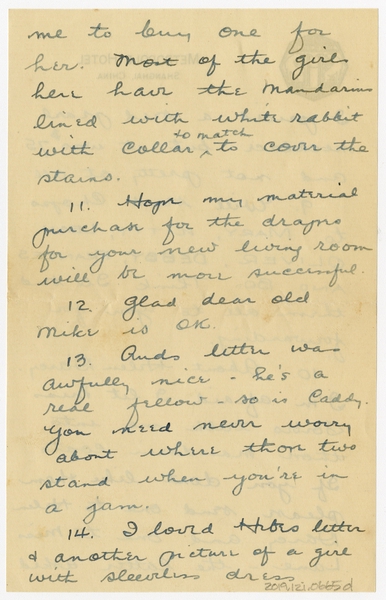 me to buy one for
her. Most of the girls
here have the mandarins
lined with white rabbit
to match
with collar ^ to cover the
stains.
11. Hope my material
purchase for the drapes
for your new living room
will be more successful.
12. Glad dear old
Mike is OK.
13. Auds letter was
awfully nice - he's a
real fellow - so is Caddy.
You need never worry
about where those two
stand when you're in
a jam.
14. I loved letter
& another picture of a girl
with sleeveless dress
2019.121.0665d